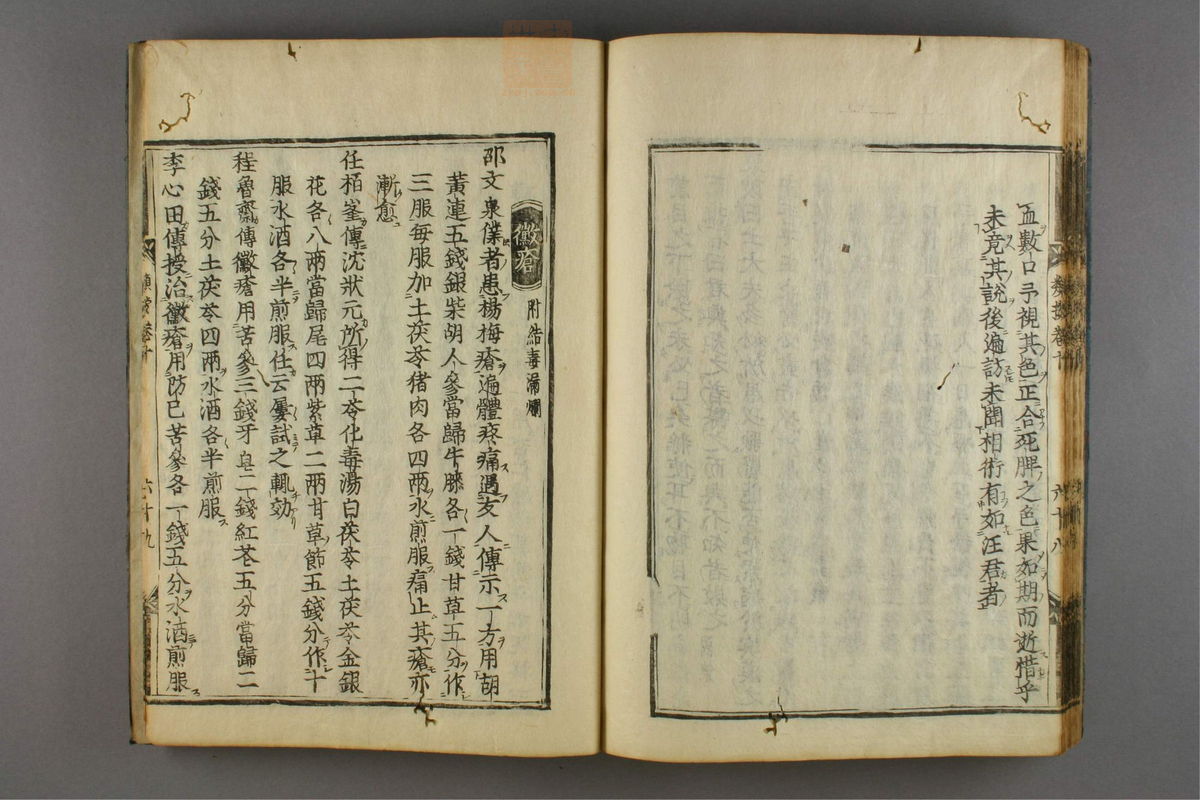 血數口予視其色正合死脾之色果如期而逝惜乎
未竟其說後遍訪未聞相術有如汪君者
六十八
黴瘡 附結毒漏爛
邵文泉僕者患楊梅瘡遍體疼痛遇友人傳示一方用胡
黃連五錢銀柴胡人參當歸牛膝各一錢甘草五分作
三服每服加土茯苓猪肉各四兩水煎服痛止其瘡亦
漸愈
任柏峯傳沈狀元所得二苓化毒湯白茯苓土茯苓金銀
花各八兩當歸尾四兩紫草二兩甘草節五錢分作十
服水酒各半煎服任云屢試之輒効
程魯齋傳黴瘡用苦參三錢牙皂二錢紅花五分當歸二
錢五分土茯苓四兩水酒各半煎服
李心田傳授治黴瘡用防已苦參各一錢五分水酒煎服
六十九